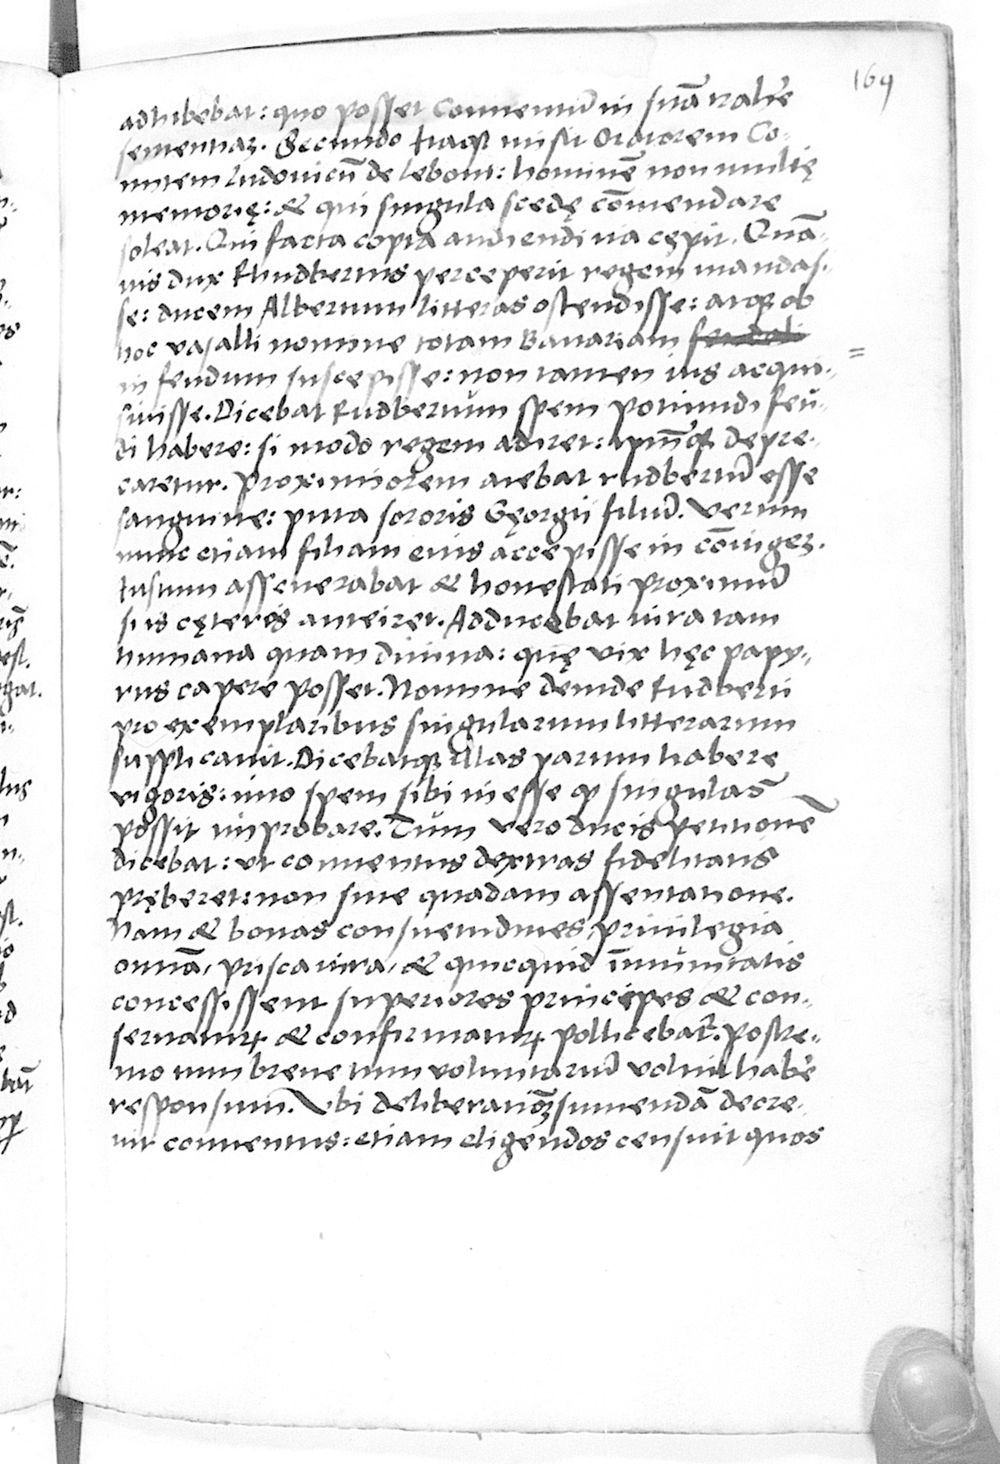 169
adhibebat: quo posset Conuentū in suā trahēe
sententiaȝ. Secundo itaqȝ misit Oratorem Co-
mitem Ludouicū de lebont: hominē non multę
memorię: & qui singula scedę cōmendare
soleat. Qui facta copia audiendi ita cępit. Quā-
uis dux Rhudbertus perceperit regem mandas-
se: ducem Albertum litteras ostendisse: atqȝ ob
hoc vasalli nomine totam Bauariam
in feudum suscepisse: non tamen ius acqui-
siuisse. Dicebat Rudbertum spem potiundi feu-
di habere: si modo regem adiret: ipsumqȝ depre-
caretur. Proximiorem aiebat rudbertū esse
sanguine: puta sororis Gęorgii filiū. Verum
nunc etiam filiam eius accepisse in cōiugeȝ.
Iustum asseuerabat & honestati proximū
si is cęteris anteiret. Adducebat iura tam
humana quam diuina: quę vix hęc papy-
rus capere posset. Nomine deinde rudberti
pro exemplaribus singularum litterarum
supplicauit. Dicebatqȝ illas parum habere
vigoris: imo spem sibi inesse qȝ singulas
possit improbare. Tum vero ducis petitionē
dicebat: vt conuentus dextras fidelitatis
pręberet: non sine quadam assentatione.
Nam & bonas consuetudines, priuilegia
omnia, prisca iura, & quicquid īmunitatis
concessissent superiores principes & con-
seruaturȝ & confirmaturȝ pollicebat̃. Postre-
mo tum breue tum voluntariū voluit habēe
responsum. Vbi deliberationȝ sumendā decre-
uit conuentus: etiam eligendos censuit quos